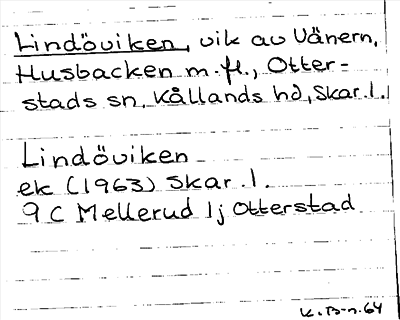 Lindöviken, vik av Vänern,
Husbacken m.fl., Otter-
stads sn, Kållands hd, Skar.l.
Lindöviken
ek (1963) Skar.l.
9C Mellerud 1j Otterstad
K.B-n.64